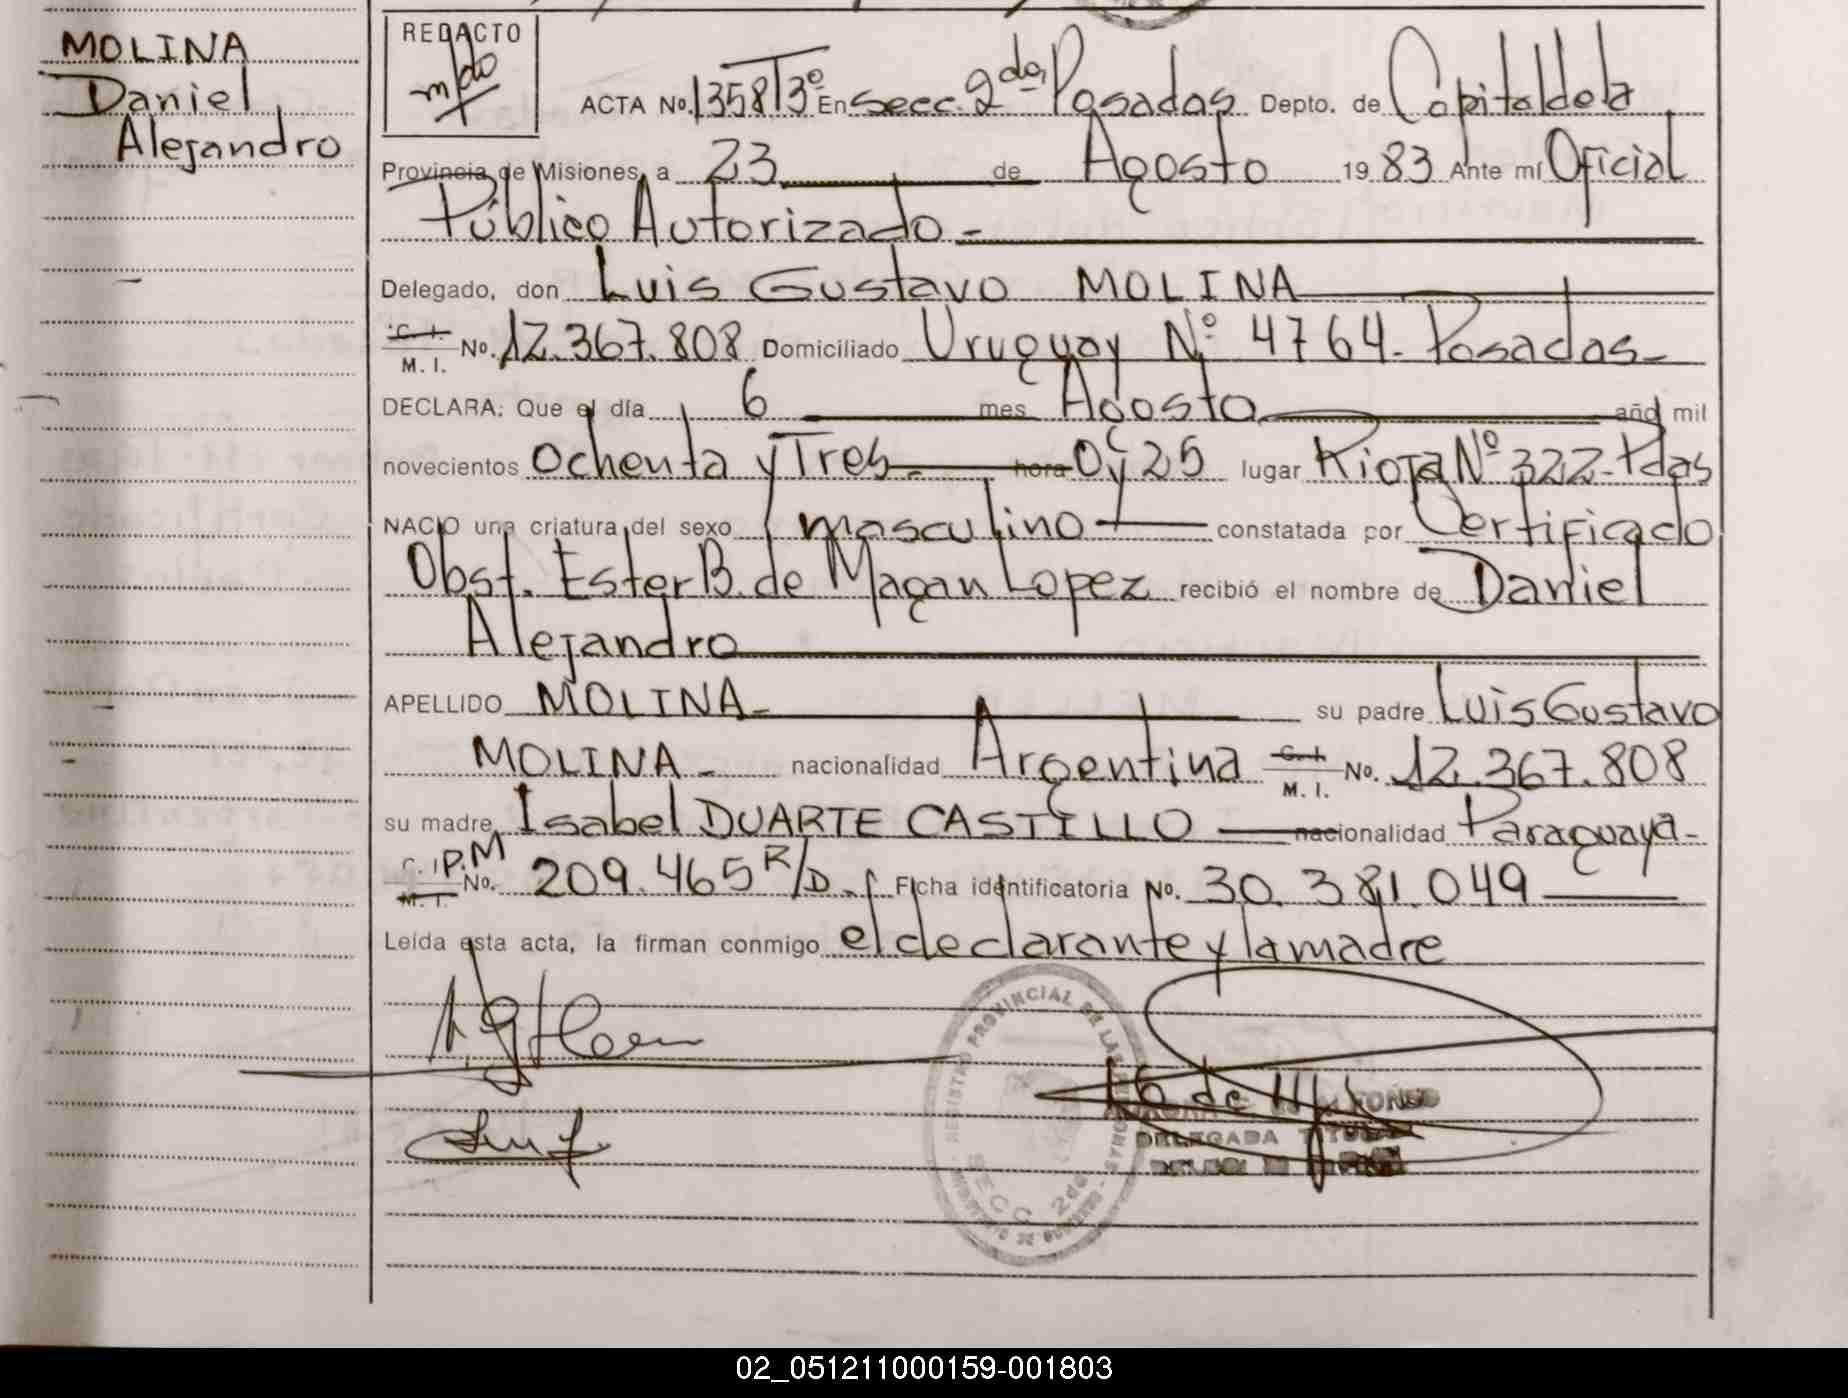 MOLINA
Daniel
Alejandro
REDACTO
ACTA No. 1358 T 3º En Secc. 2da, Posadas Depto. de Capital de la
Provincia de Misiones, a 23 de Agosto 1983 Ante mí Oficial
Público Autorizado -
Delegado, don Luis Gustavo MOLINA
C. I. M. I. No. 12.367.808 Domiciliado Uruguay Nº 4764 - Posadas -
DECLARA: Que el día 6 mes Agosto año mil
novecientos ochenta y Tres - hora 0 y 25 lugar Rioja Nº 322 - Pdas
NACIO una criatura del sexo masculino constatada por Certificado
Obst. Ester B. de Magan Lopez recibió el nombre de Daniel
Alejandro
APELLIDO MOLINA - su padre Luis Gustavo
MOLINA - nacionalidad Argentina C. I. M. I. No. 12.367.808
su madre Isabel DUARTE CASTILLO nacionalidad Paraguaya -
C. I. P.M M. I. No. 209.465 R/D. Ficha identificatoria No. 30.381.049
Leída esta acta, la firman conmigo el declarante y la madre
REGISTRO PROVINCIAL DE LAS PERSONAS
SECC 2da
DELEGADA TITULAR
02_051211000159-001803